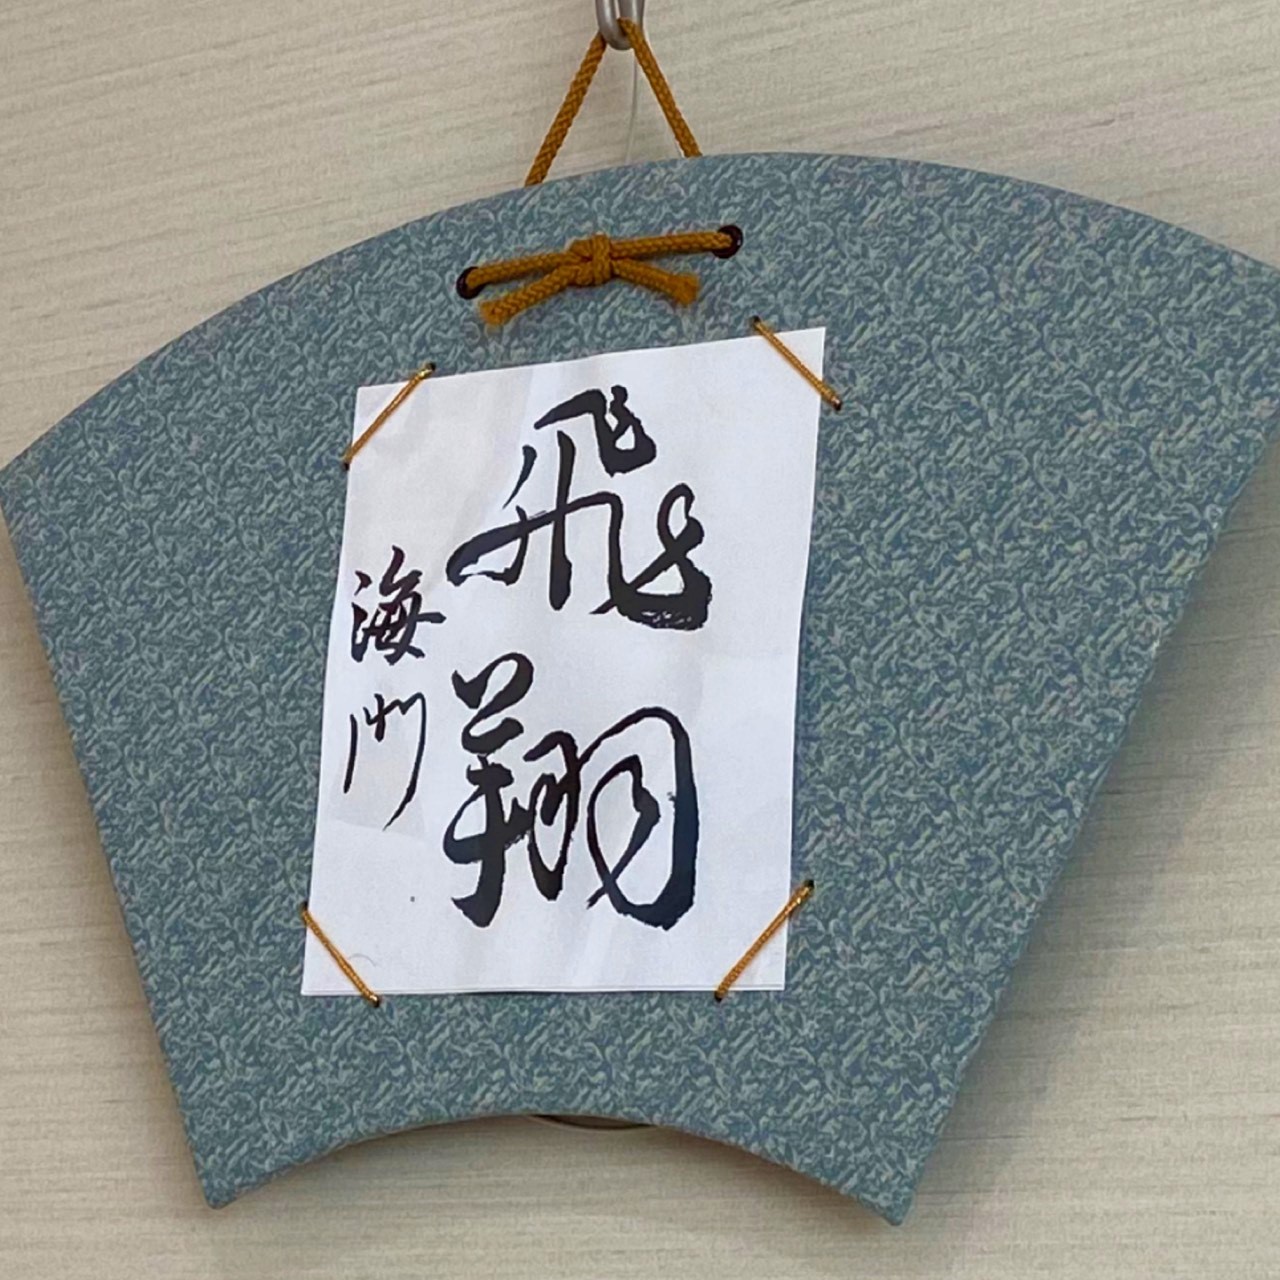 飛翔
海州